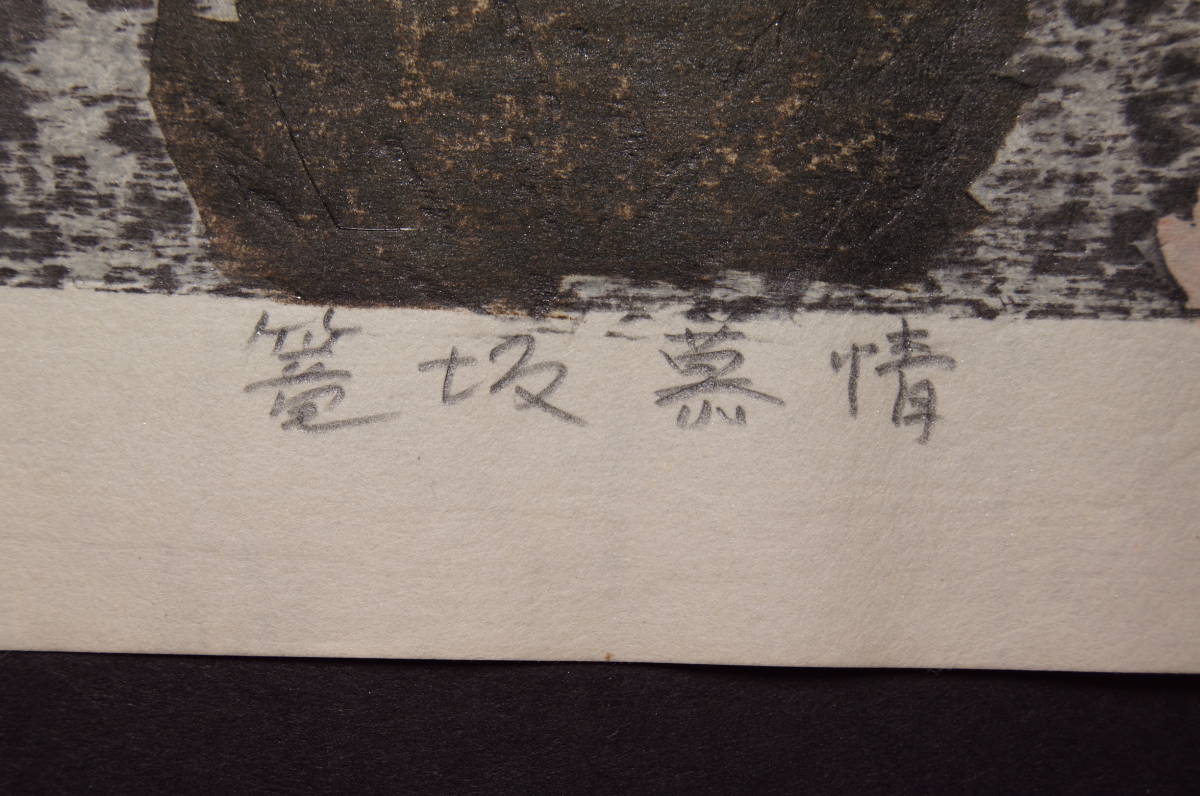 篭坂慕情